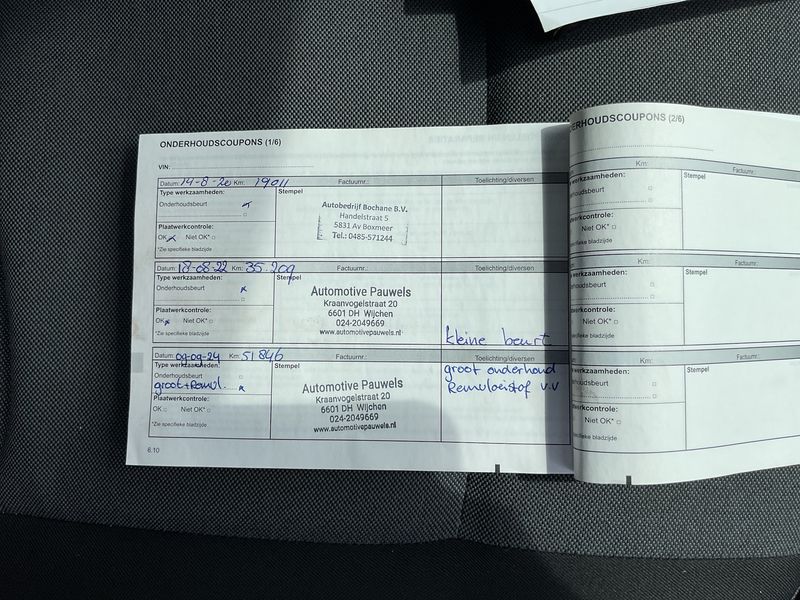 ONDERHOUDSCOUPONS (1/6)
VIN:
Datum: 14-8-20 Km: 19011 Factuurnr.: Toelichting/diversen
Type werkzaamheden: Stempel
Onderhoudsbeurt
Autobedrijf Bochane B.V.
Handelstraat 5
5831 Av Boxmeer
Tel.: 0485-571244
Plaatwerkcontrole:
OK Niet OK*
*Zie specifieke bladzijde
Datum: 18-08-22 Km: 35.209 Factuurnr.: Toelichting/diversen
Type werkzaamheden: Stempel
Onderhoudsbeurt
Automotive Pauwels
Kraanvogelstraat 20
6601 DH Wijchen
024-2049669
www.automotivepauwels.nl
Plaatwerkcontrole:
OK Niet OK*
*Zie specifieke bladzijde
kleine beurt
Datum: 09-09-24 Km: 51846 Factuurnr.: Toelichting/diversen
Type werkzaamheden: Stempel
Onderhoudsbeurt
groot+Remvl.
Automotive Pauwels
Kraanvogelstraat 20
6601 DH Wijchen
024-2049669
www.automotivepauwels.nl
groot onderhoud
Remvloeistof v.v
Plaatwerkcontrole:
OK Niet OK*
*Zie specifieke bladzijde
6.10
ERHOUDSCOUPONS (2/6)
Km: Factuurnr.:
werkzaamheden: Stempel
houdsbeurt
werkcontrole:
Niet OK*
specifieke bladzijde
Km: Factuurnr.:
werkzaamheden: Stempel
houdsbeurt
werkcontrole:
Niet OK*
specifieke bladzijde
Km: Factuurnr.:
werkzaamheden: Stempel
houdsbeurt
werkcontrole:
Niet OK*
specifieke bladzijde